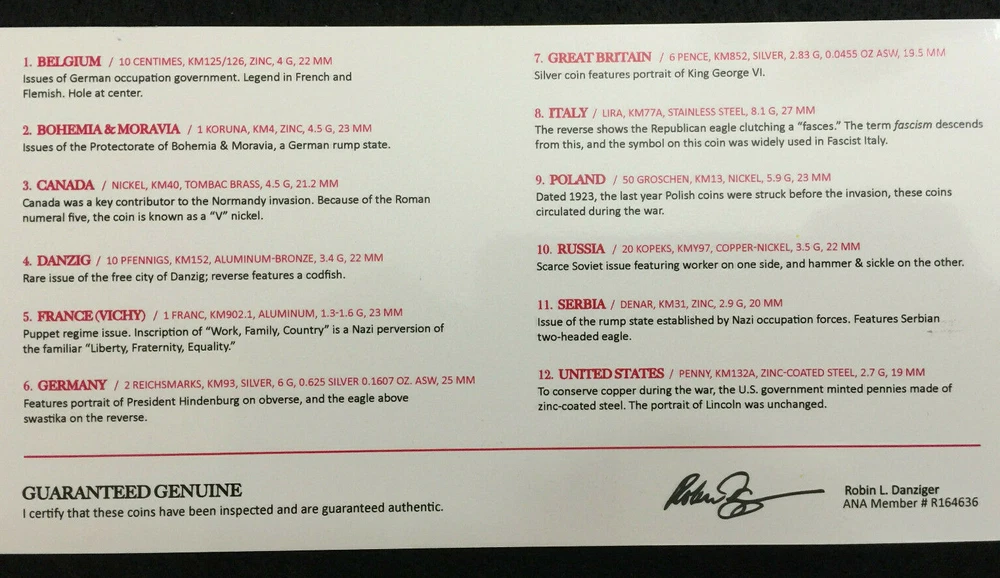 1. BELGIUM / 10 CENTIMES, KM125/126, ZINC, 4 G, 22 MM
Issues of German occupation government. Legend in French and
Flemish. Hole at center.
2. BOHEMIA & MORAVIA / 1 KORUNA, KM4, ZINC, 4.5 G, 23 MM
Issues of the Protectorate of Bohemia & Moravia, a German rump state.
3. CANADA / NICKEL, KM40, TOMBAC BRASS, 4.5 G, 21.2 MM
Canada was a key contributor to the Normandy invasion. Because of the Roman
numeral five, the coin is known as a “V” nickel.
4. DANZIG / 10 PFENNIGS, KM152, ALUMINUM-BRONZE, 3.4 G, 22 MM
Rare issue of the free city of Danzig; reverse features a codfish.
5. FRANCE (VICHY) / 1 FRANC, KM902.1, ALUMINUM, 1.3-1.6 G, 23 MM
Puppet regime issue. Inscription of “Work, Family, Country” is a Nazi perversion of
the familiar “Liberty, Fraternity, Equality.”
6. GERMANY / 2 REICHSMARKS, KM93, SILVER, 6 G, 0.625 SILVER 0.1607 OZ. ASW, 25 MM
Features portrait of President Hindenburg on obverse, and the eagle above
swastika on the reverse.
7. GREAT BRITAIN / 6 PENCE, KM852, SILVER, 2.83 G, 0.0455 OZ ASW, 19.5 MM
Silver coin features portrait of King George VI.
8. ITALY / LIRA, KM77A, STAINLESS STEEL, 8.1 G, 27 MM
The reverse shows the Republican eagle clutching a “fasces.” The term fascism descends
from this, and the symbol on this coin was widely used in Fascist Italy.
9. POLAND / 50 GROSCHEN, KM13, NICKEL, 5.9 G, 23 MM
Dated 1923, the last year Polish coins were struck before the invasion, these coins
circulated during the war.
10. RUSSIA / 20 KOPEKS, KMY97, COPPER-NICKEL, 3.5 G, 22 MM
Scarce Soviet issue featuring worker on one side, and hammer & sickle on the other.
11. SERBIA / DENAR, KM31, ZINC, 2.9 G, 20 MM
Issue of the rump state established by Nazi occupation forces. Features Serbian
two-headed eagle.
12. UNITED STATES / PENNY, KM132A, ZINC-COATED STEEL, 2.7 G, 19 MM
To conserve copper during the war, the U.S. government minted pennies made of
zinc-coated steel. The portrait of Lincoln was unchanged.
GUARANTEED GENUINE
I certify that these coins have been inspected and are guaranteed authentic.
Robin L. Danziger
ANA Member # R164636